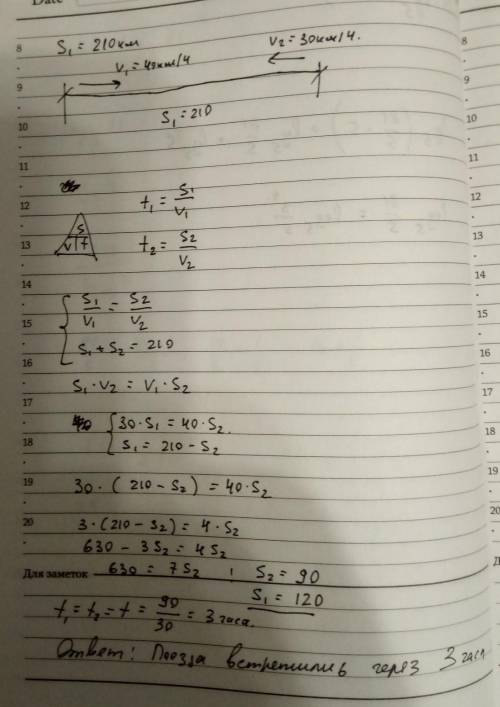 Date
8
S₁ = 210 км
V₂ = 30 км/ч.
V₁ = 40 км/ч
9
S₁ = 210
10
11
12
t₁ = S₁/V₁
S
V t
13
t₂ = S₂/V₂
14
{ S₁/V₁ = S₂/V₂
15
S₁ + S₂ = 210
16
S₁ · V₂ = V₁ · S₂
17
{ 30 · S₁ = 40 · S₂.
18
S₁ = 210 − S₂
19
30 · ( 210 − S₂ ) = 40 · S₂
20
3 · (210 − S₂) = 4 · S₂
630 − 3S₂ = 4S₂
Для заметок 630 = 7S₂ ; S₂ = 90
S₁ = 120
t₁ = t₂ = t = 90/30 = 3 часа.
Ответ: Поезда встретились через 3 часа
8
9
10
11
12
13
14
15
16
17
18
19
20